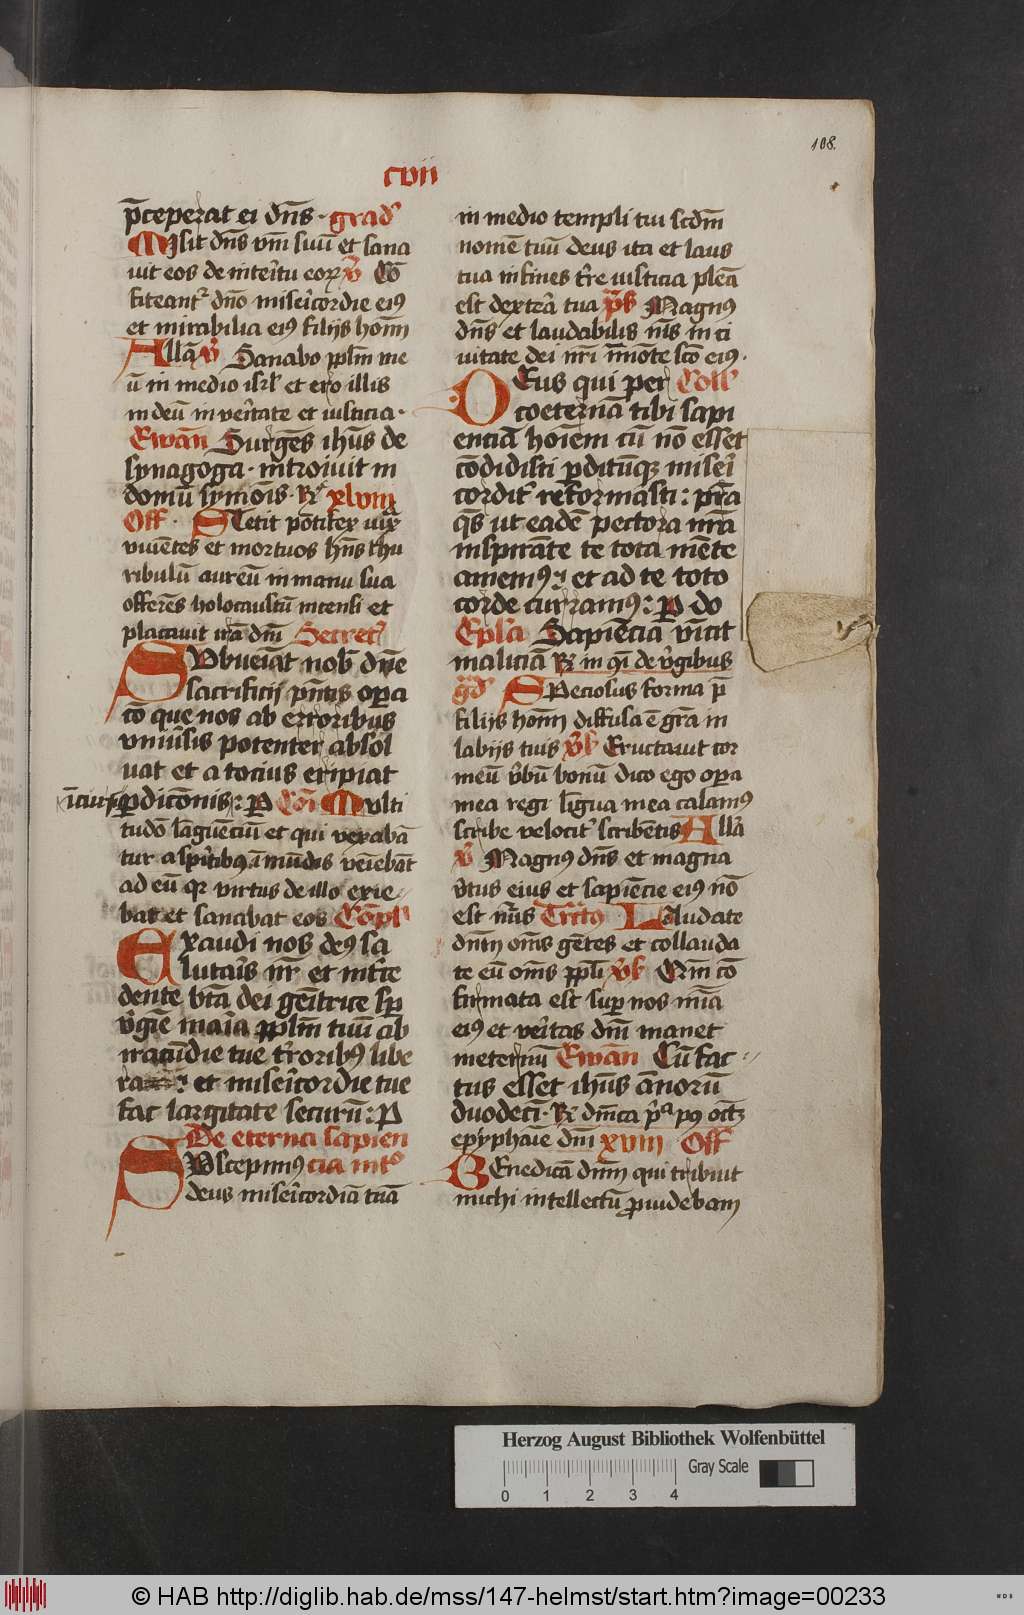 108.
cvii
p̄ceperat ei dn̄s · grad᷒
Misit dn̄s vm̄ suū et sana
uit eos de interitu eoꝝ v̄ Cō
fiteant᷒ dn̄o miserīcordie eiꝰ
et mirabilia eiꝰ filijs homī
Allā v̄ Sanabo pplm̄ me
ū in medio isrl̄ et ero illis
in deū in veritate et iusticia ·
Ewān Surgēs ihūs de
synagoga · introiuit in
domū symōis · R᷒ xlviii
Off · Stetit pōtifex int̄
viuētes et mortuos hn̄s thu
ribulū aureū in manu sua
offerēs holocaustū incensi et
placauit irā dn̄i Secret᷒
SVbueiāt nob̄ dn̄e
sacrificij pn̄tis opera
cō que nos ab erroribus
vniūsis potenter absol
uat et a tocius eripiat
p̱dicōnis : P Cōi Multi
tudō lāguēciū et qui vexabā
tur a spiritibꝰ īmūdis veiebāt
ad eū qꝛ virtus de illo exie
bat et sanabat eos Cōpl᷒
EXaudi nos deꝰ sa
lutaris nr̄ et int̄ce
dente bt̄a dei genitrice sp̄
v̄gīe maria pplm̄ tuū ab
iracūdie tue t̄roribꝰ libe
ra : et miserīcordie tue
fac largitate securū : P
De eterna sapien
SVscepimꝰ cia int᷒
deus misericordiā tuā
in medio templi tui scdm̄
nomē tuū deus ita et laus
tua in fines t̄re iusticia plēa
est dextera tua p̄s Magnꝰ
dn̄s et laudabilis nīs in ci
uitate dei nr̄i ī mōte scō eiꝰ ·
DEus qui per Coll᷒
coeternā tibi sapi
entiā hoīem cū nō esset
cōdidisti p̱ditūqꝫ miseri
cordit᷒ reformasti : pr̄a
qs̄ ut eadē pectora nr̄a
inspirāte te tota mēte
amemꝰ : et ad te toto
corde curramꝰ : P do
Epl̄a Sapīēciā vīcit
maliciā R᷒ in qi de v̄gibus
gd᷒ Speciosus forma p̄
filijs homī diffusa ē gr̄a in
labijs tuis v̄s Eructauit cor
meū v̄bū bonū dico ego opera
mea regi lingua mea calamꝰ
scribe velocit᷒ scribētis Allā
v̄ Magnꝰ dn̄s et magna
v̄tus eius et sapīēcie eiꝰ nō
est nūis Trcto Laudate
dn̄m om̄s gētes et collauda
te eū om̄s ppl̄i v̄s Qm̄ cō
firmata est sup nos mīa
eiꝰ et veritas dn̄i manet
ineternū Ewān Cū fac
tus esset ihūs ānorū
duodeci · R᷒ dn̄ica p̄ᵃ pꝰ octꝫ
epyphaīe dn̄i xviii Off
Benedicā dn̄m qui tribuit
michi intellectū prouidebam
Herzog August Bibliothek Wolfenbüttel
Gray Scale
0 1 2 3 4
© HAB http://diglib.hab.de/mss/147-helmst/start.htm?image=00233